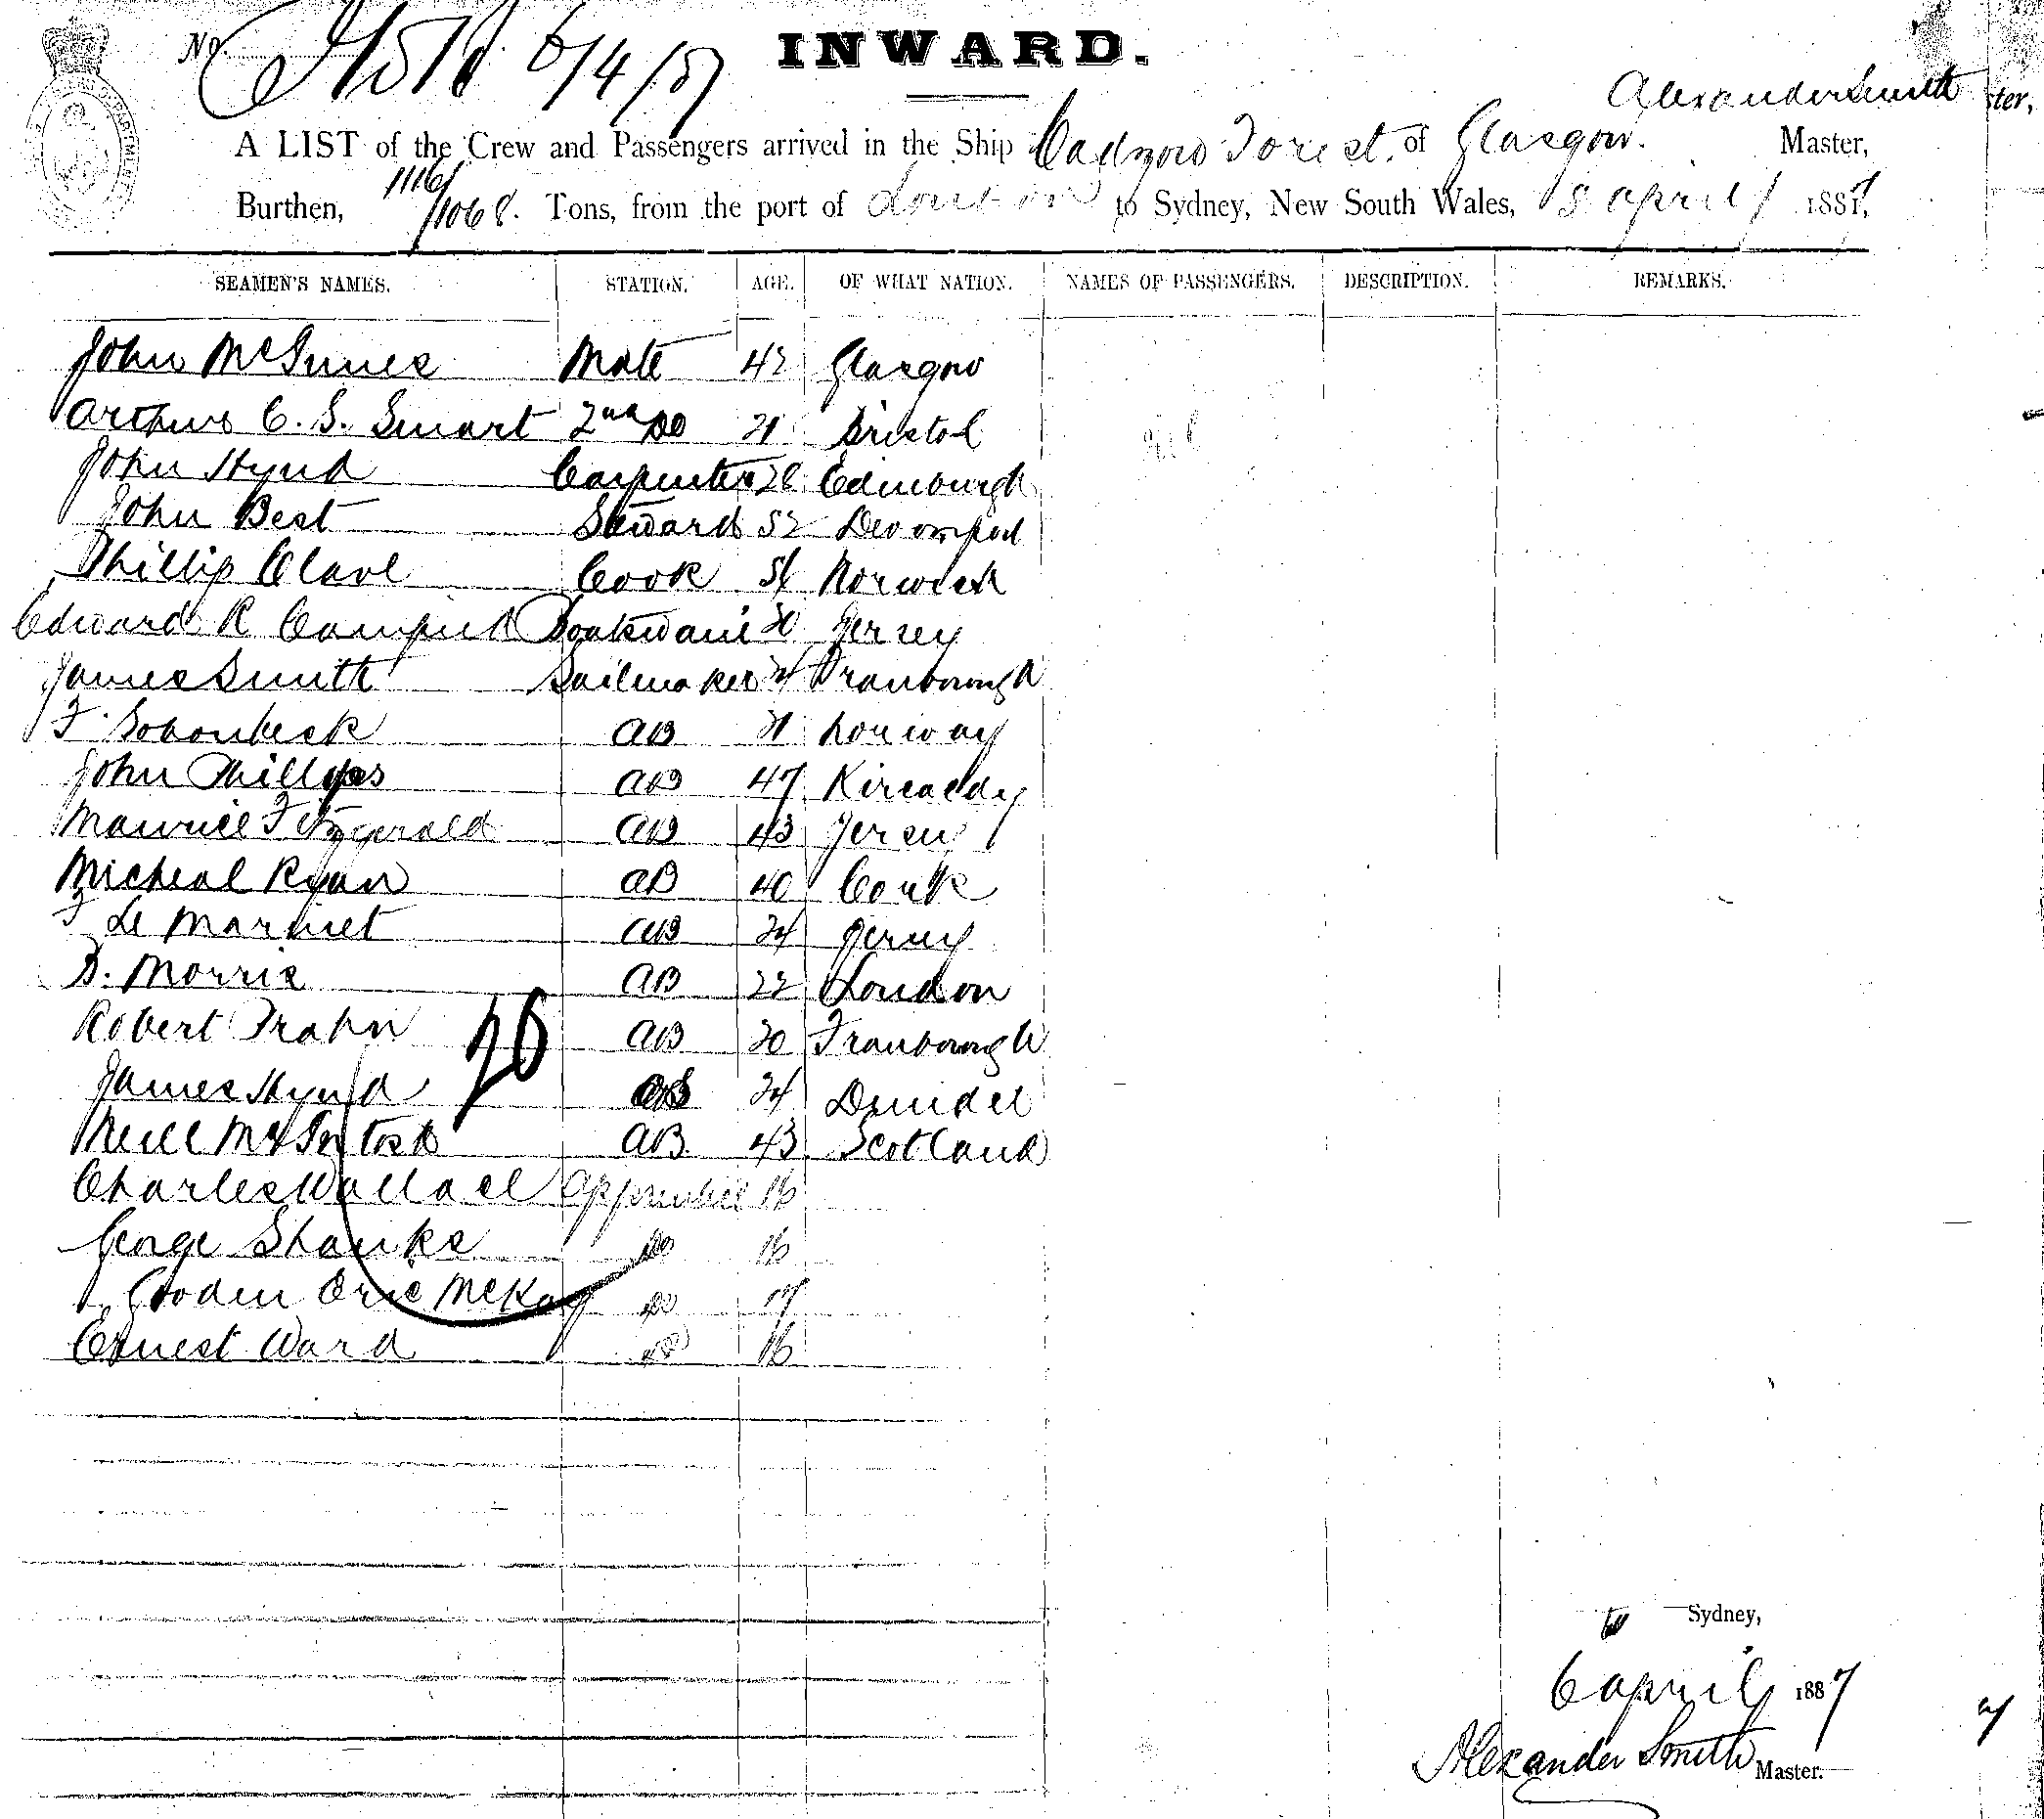 No. 6/4/87 INWARD.
Alexander Smith
ster,
A LIST of the Crew and Passengers arrived in the Ship Cadzow Forest. of Glasgow. Master,
1116/1068. Tons, from the port of London to Sydney, New South Wales, 5 april 1887,
Burthen,
SEAMEN'S NAMES. STATION. AGE. OF WHAT NATION. NAMES OF PASSENGERS. DESCRIPTION. REMARKS.
John McInnes Mate 42 Glasgow
Arthur C. S. Smart 2nd Do 21 Bristol
John Hynd Carpenter 28 Edinburgh
John Best Steward 52 Devonport
Phillip Clave Cook 54 Norwich
Edward R Boatswain 30 Jersey
James Smith Sailmaker 24
F. AB 21 Norway
John Phillips AB 47 Kircaldy
Maurice Fitzgerald AB 43 Jersey
Micheal Ryan AB 40 Cork
F Le Marinet AB 24 Jersey
D. Morris AB 22 London
Robert Trahn AB 20
20
James Hynd OS 24 Dundee
Neill McIntosh AB 43 Scotland
Charles Wallace Apprentice 16
George Shanks Do 16
Eric McKay Do 17
Ernest Ward Do 16
Sydney,
6 april 1887
Alexander Smith Master.